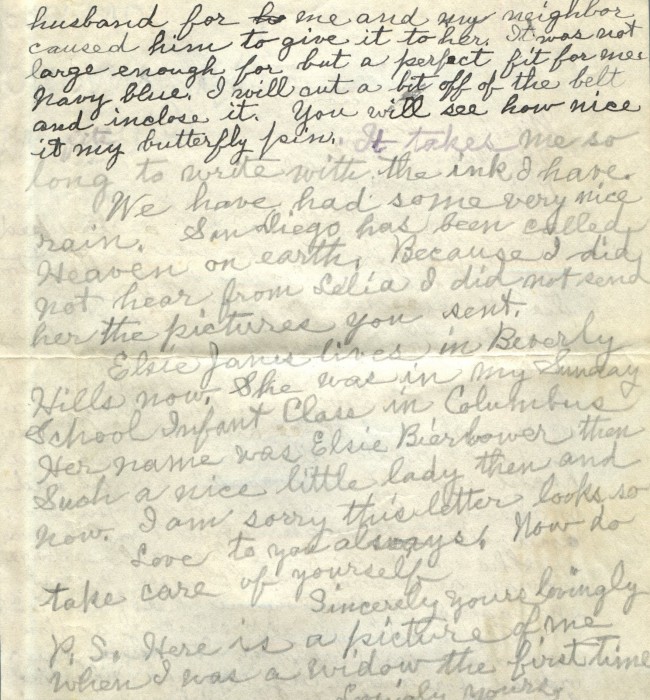 husband for to me and my neighbor
caused him to give it to her. It was not
large enough for but a perfect fit for me.
Navy blue. I will cut a bit off of the belt
and inclose it. You will see how nice
it my butterfly pin. It takes me so
long to write with the ink I have.
We have had some very nice
rain. San Diego has been called
Heaven on earth. Because I did
not hear from Lelia I did not send
her the pictures you sent.
Elsie Janis lives in Beverly
Hills now. She was in my Sunday
School Infant Class in Columbus
Her name was Elsie Bierbower then
Such a nice little lady then and
now. I am sorry this letter looks so
Love to you always. Now do
take care of yourself
Sincerely yours lovingly
P.S. Here is a picture of me
when I was a widow the first time
yours